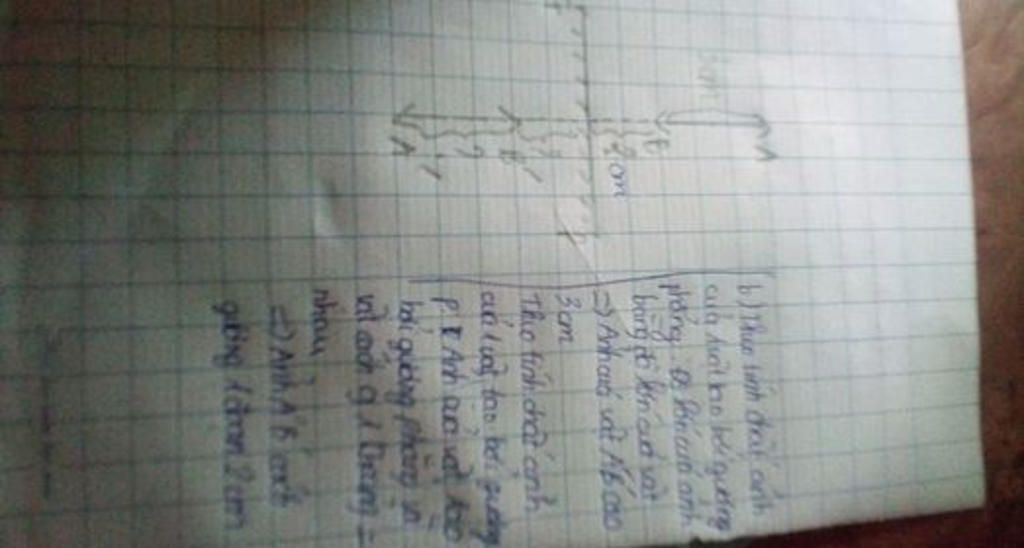 A
3cm
B
2cm
B'
A'
b) Theo tính chất ảnh
của 1 vật tạo bởi gương
phẳng độ lớn của ảnh
bằng độ lớn của vật
=> Ảnh của vật AB cao
3cm
Theo tính chất ảnh
của 1 vật tạo bởi gương
P. Ảnh của vật tạo
bởi gương phẳng
và cách g 1 khoảng =
nhau
=> Ảnh A'B' cách
gương 1 đoạn 2cm